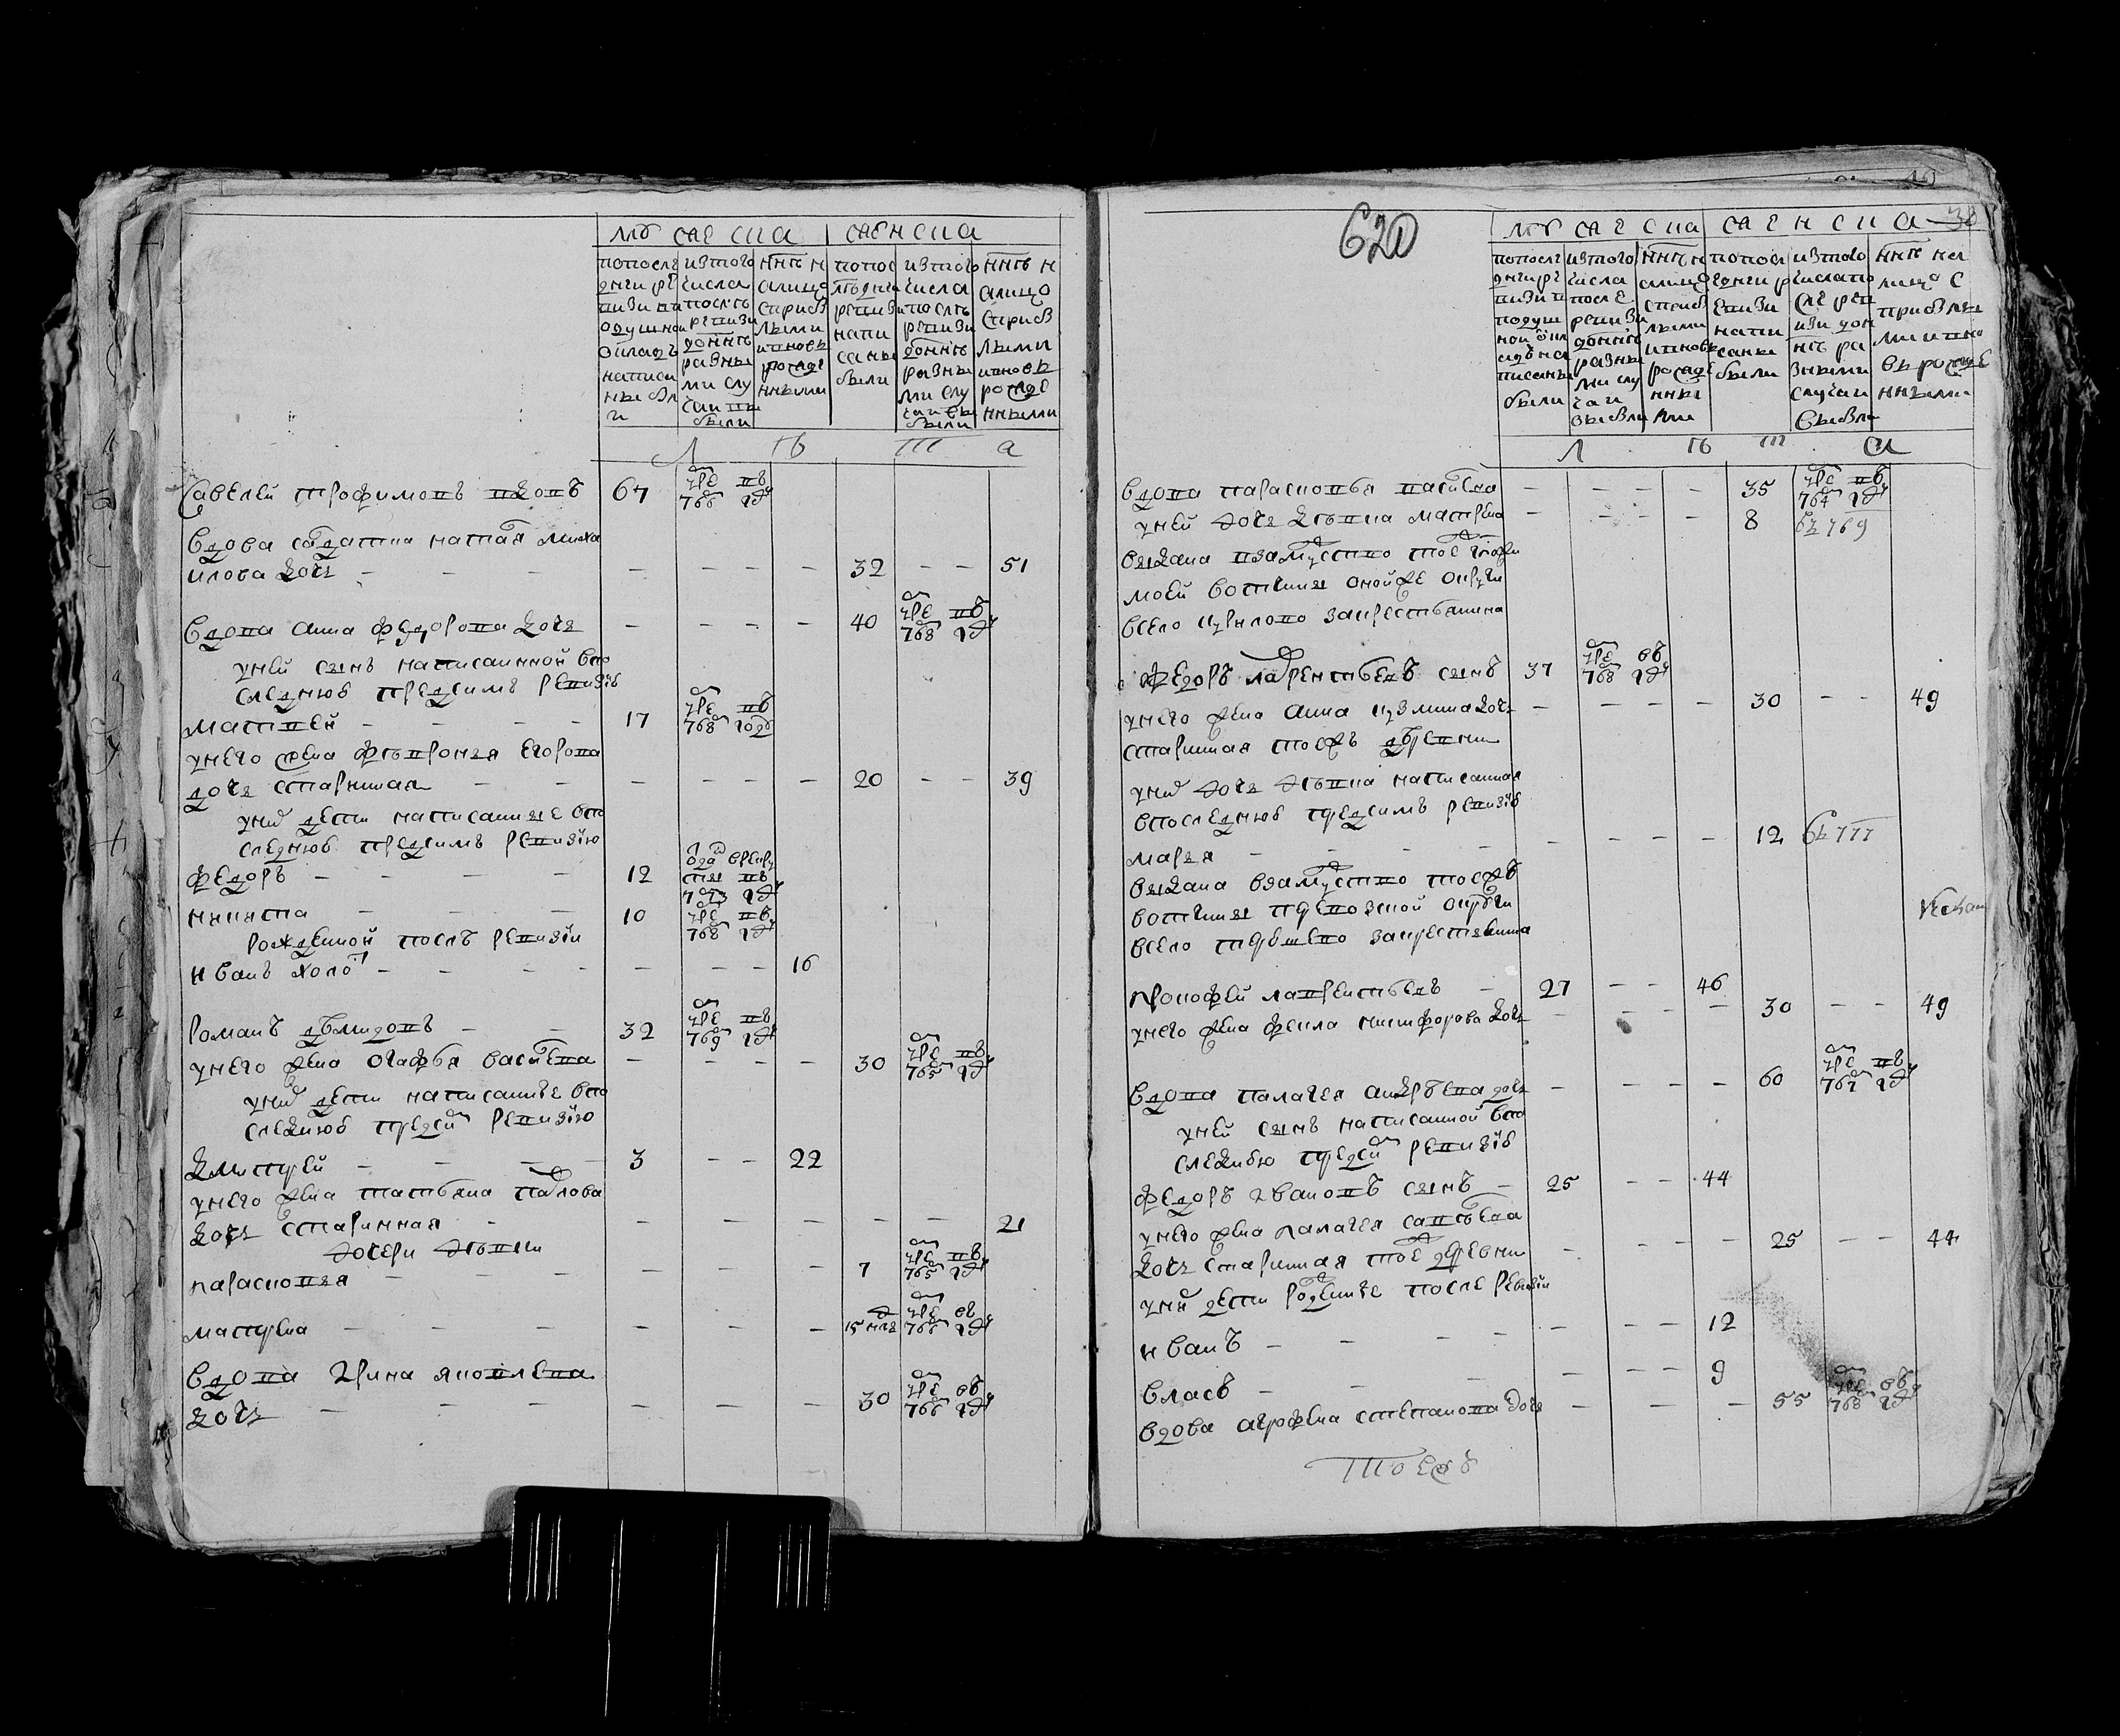 мѣ ска ска
женска
попосле
днеи ре
визии въ
одушном
окладъ
написа
ны был
и
изтого
числа
послѣ
ревизи
доннѣ
разны
ми слу
чаи вы
были
ннѣ н
алицо
сприб
лыми
ивновь
рожде
нными
попос
лѣдне
ревизи
напи
саны
были
изтого
числа
послѣ
ревизи
доннѣ
разны
ми слу
чаи вы
были
ннѣ н
алицо
сприб
лыми
ивновь
рожде
нными
Л ѣ т а
Савелей трофимовъ вдовъ 67 умре въ 768 годѣ
Вдова салдатка наталья миха
илова дочь - - - - - 32 - - 51
Вдова анна федорова дочь - - - - 40 умре въ 768 годѣ
унеи сынъ написанной впо
следнюю предсимъ ревизию
матвей - - - 17 умре въ 768 годѣ
унего жена февронья егорова
дочь старинная - - - - - - 20 - - 39
уних дети написанные впо
следнюю предсимъ ревизию
федоръ - - - - 12 отдан в рекруты въ 773 годѣ
никита - - - 10 умре въ 768 годѣ
рожденной послѣ ревизии
иванъ холост - - - - - - 16
романъ демидовъ - - 32 умре въ 769 годѣ
унего жена агафья васильева - - - - 30 умре въ 765 годѣ
уних дети написанные впо
следнюю предсимъ ревизию
дмитрей - - - - 3 - - 22
унего жена татьяна павлова
дочь старинная - - - - - - 21
дочери девки
парасковья - - - - - - 7 умре въ 765 годѣ
матрена - - - - - - 15 нед умре въ 766 годѣ
Вдова ирина яковлева
дочь - - - - - - - 30 умре въ 766 годѣ
620
38
мѣ ска
женска
попосле
дней ре
визии в
подуш
ной окл
адъ на
писаны
были
изтого
числа
после
ревизи
доннѣ
разны
ми слу
чаи
выбыли
ннѣ н
алицо
сприб
лыми
ивновь
рожде
нны
ми
попосл
едней р
евизи
напи
саны
были
изтого
числапо
сле рев
изи дон
нѣ ра
зными
случаи
выбыли
ннѣ на
лицо с
прибылы
ми ивно
вь рожде
нными
Л ѣ т а
Вдова парасковья васильева - - - - 35 умре въ 764 годѣ
уней дочь девка матрена - - - - 8 въ 769
выдана взамужство тоежъ
моей вотчины онойже округи
всело за крестьянина
федоръ лаврентьевъ сынъ 37 умре въ 768 годѣ
унего жена анна кузмина дочь - - - - 30 - - 49
старинная тоежъ деревни
уних дочь девка написанная
впоследнюю предсимъ ревизию
марья - - - - - - 12 въ 777
выдана взамужство тоежъ
вотчины округи
всело закрестьянина
прокофей лаврентьевъ - 27 - - 46
унего жена фекла никифорова дочь - - - - 30 - - 49
Вдова палагея андреева дочь - - - - 60 умре въ 767 годѣ
уней сынъ написанной впо
следнюю предсимъ ревизию
федоръ ивановъ сынъ - 25 - - 44
унего жена палагея савельева
дочь старинная тоежъ деревни - - - - 25 - - 44
уних дети рожденные после ревизии
иванъ - - - - - - 12
власъ - - - - - - 9
вдова аграфена степанова дочь - - - - 55 умре въ 768 годѣ
тоежъ